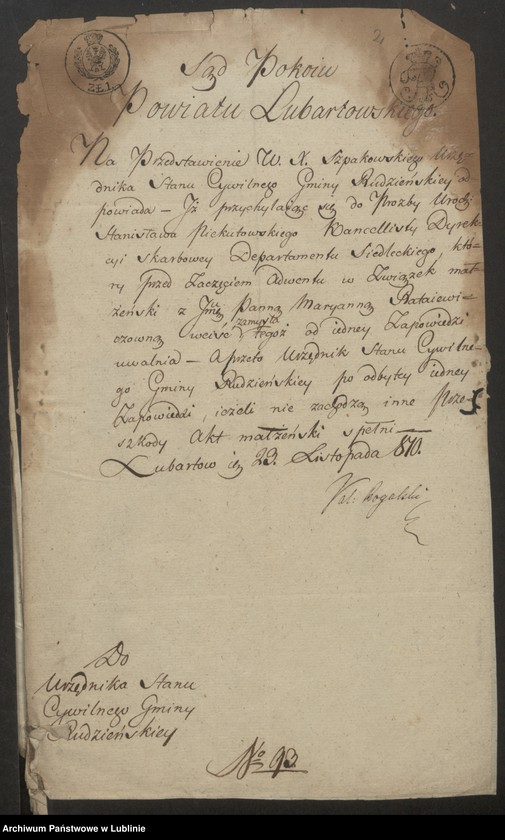 2
ZŁ.1.
Sąd Pokoiu
Powiatu Lubartowskiego.
Na Przedstawienie W. X. Szpakowskiego Urzę-
dnika Stanu Cywilnego Gminy Rudzieńskiey od
powiada – Iż przychylaiąc się do Prozby Urodz:
Stanisława Piekutowskiego Kancellisty Dyrek-
cyi skarbowey Departamentu Siedleckiego, któ-
ry przed Zaczęciem Adwentu w Związek mał-
żeński z Panną Maryanną Rataiewi-
czowną weiść zamyśla tegoż od iedney Zapowiedzi
uwalnia – a przeto Urzędnik Stanu Cywilne-
go Gminy Rudzieńskiey po odbytey iedney
Zapowiedzi ieżeli nie zachodzą inne Prze-
szkody Akt małżeński spełni
Lubartow 23. Listopada 810.
Rogalski
Do
Urzędnika Stanu
Cywilnego Gminy
Rudzieńskiey
No 93.
Archiwum Państwowe w Lublinie